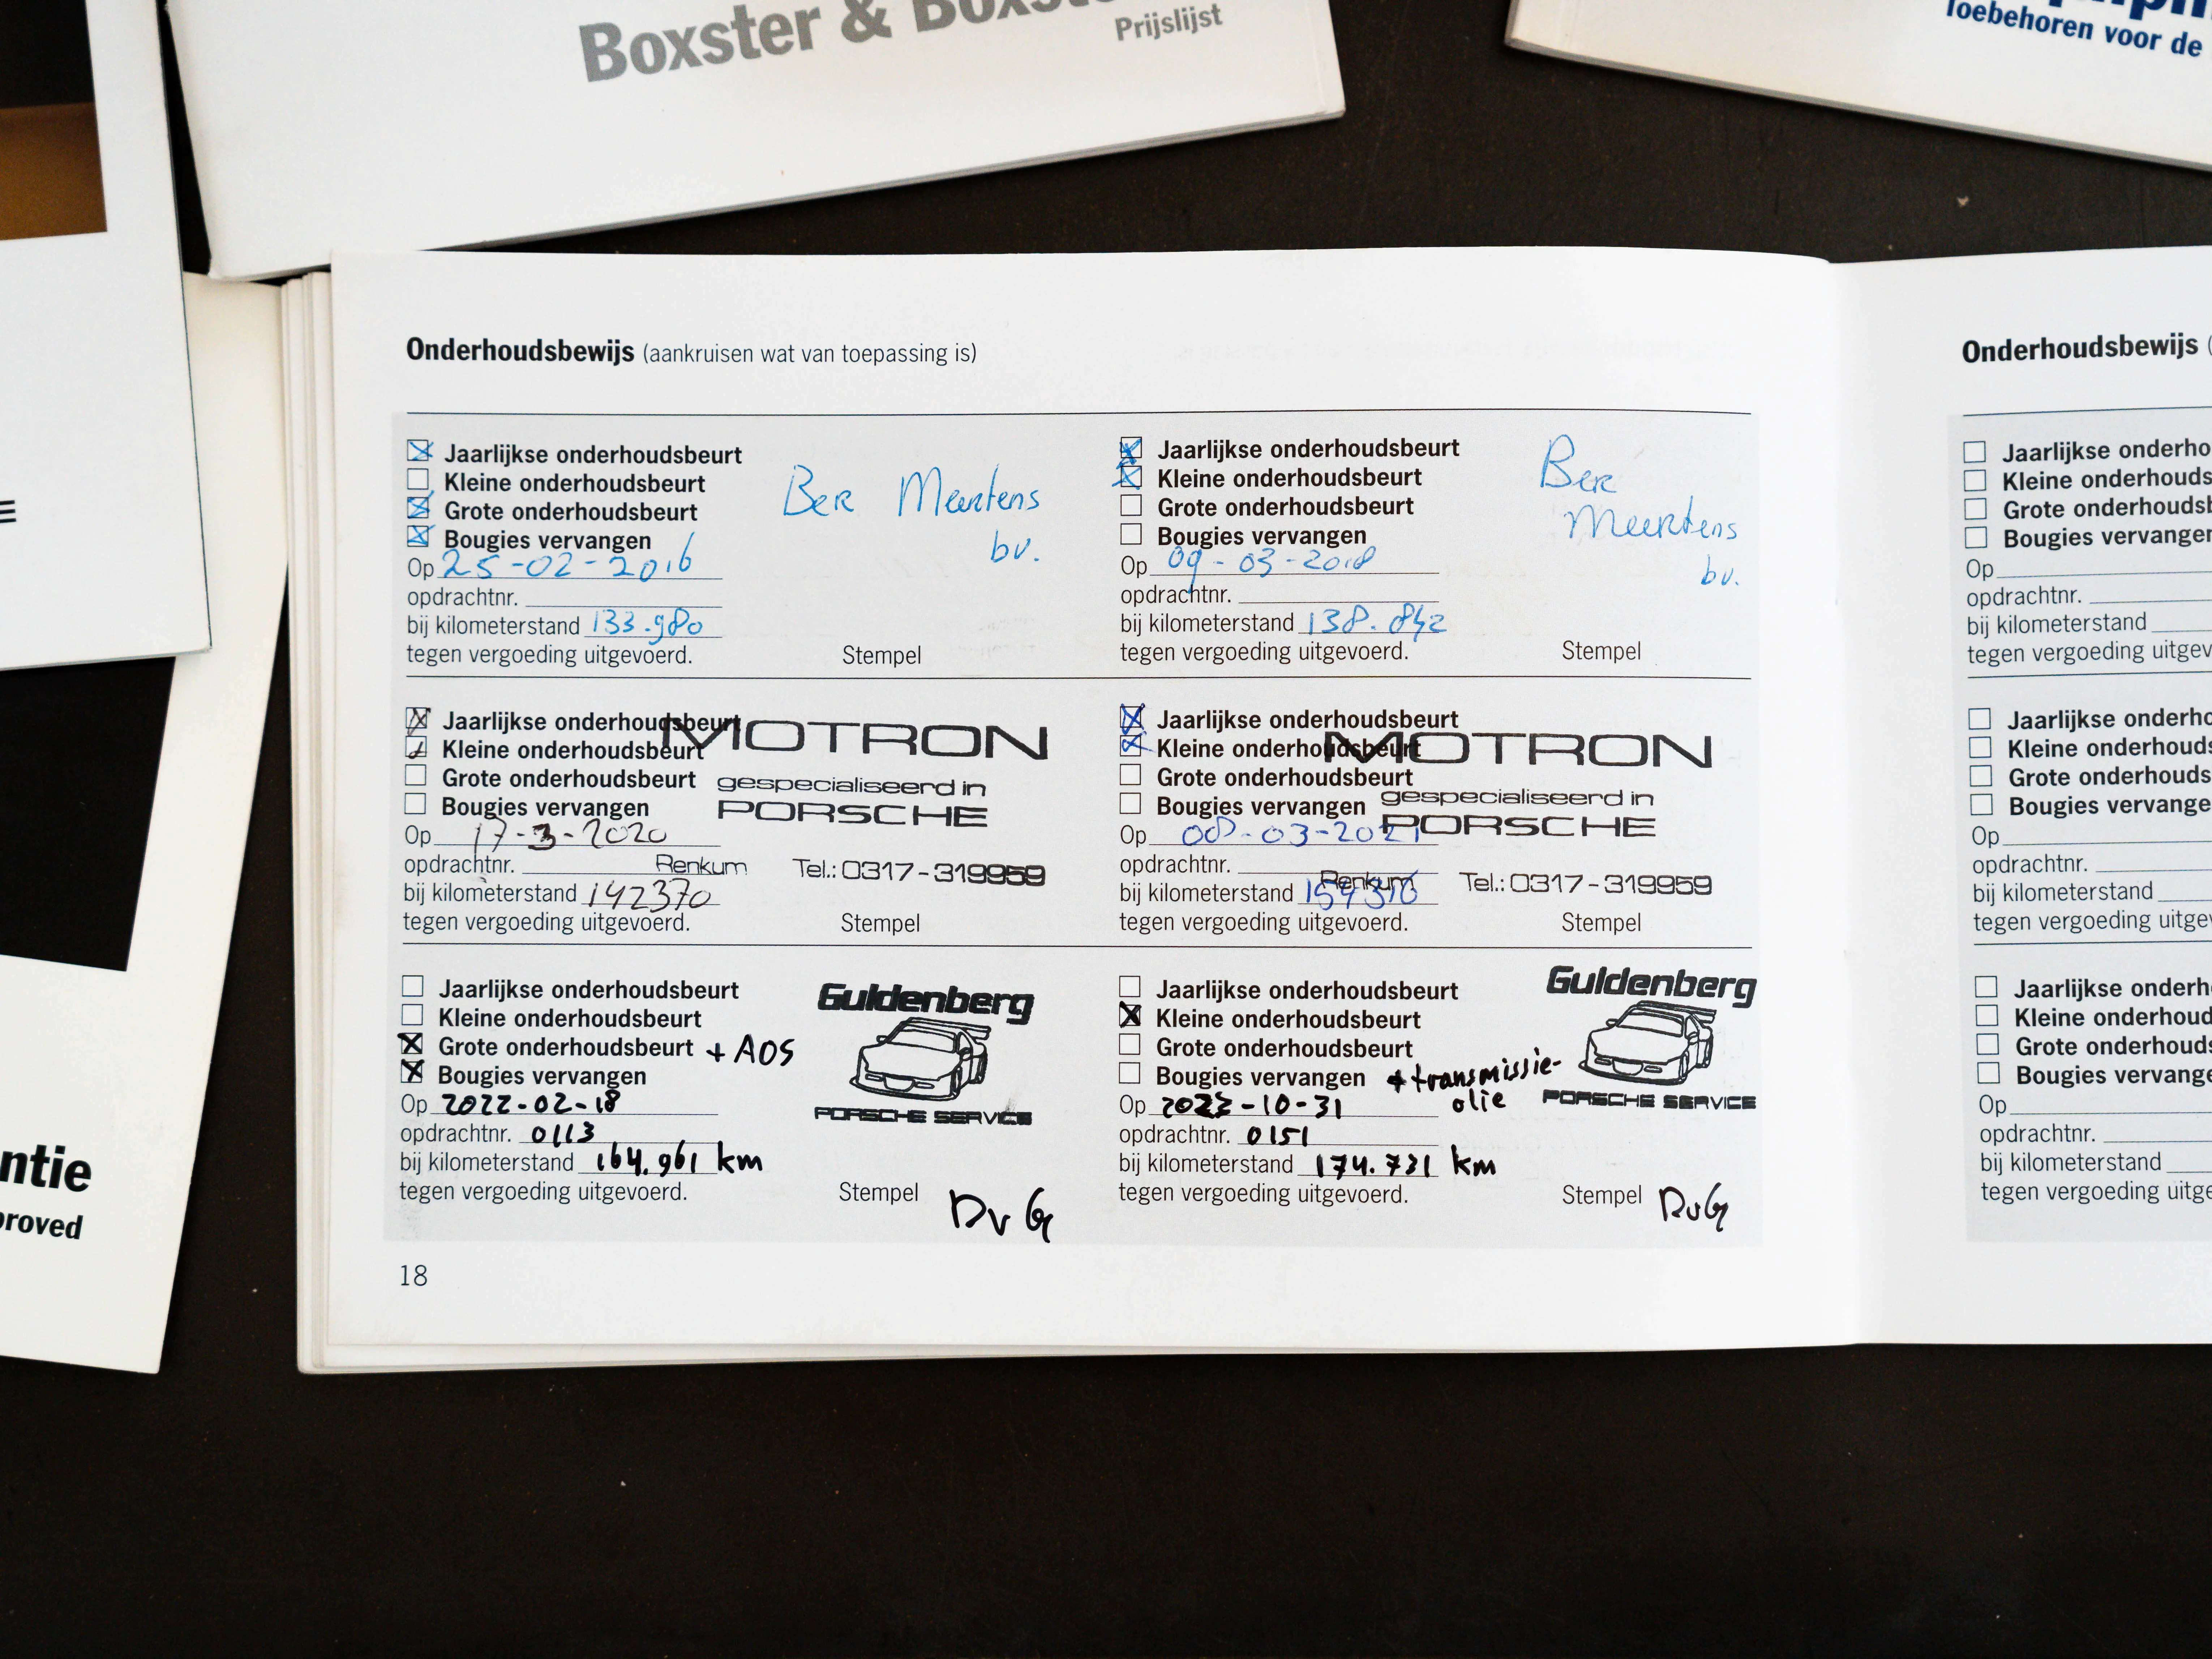 Boxster &
Prijslijst
Toebehoren voor de
Onderhoudsbewijs (aankruisen wat van toepassing is)
Jaarlijkse onderhoudsbeurt
Kleine onderhoudsbeurt
Grote onderhoudsbeurt
Bougies vervangen
Op 25-02-2016
opdrachtnr.
bij kilometerstand 133.980
tegen vergoeding uitgevoerd.
Ber Meertens
bv.
Stempel
Jaarlijkse onderhoudsbeurt
Kleine onderhoudsbeurt
Grote onderhoudsbeurt
Bougies vervangen
Op 09-03-2018
opdrachtnr.
bij kilometerstand 138.842
tegen vergoeding uitgevoerd.
Ber
Meertens
bv.
Stempel
Jaarlijkse onderhoudsbeurt
Kleine onderhoudsbeurt
Grote onderhoudsbeurt
Bougies vervangen
Op 17-3-2020
opdrachtnr.
bij kilometerstand 142370
tegen vergoeding uitgevoerd.
MOTRON
gespecialiseerd in
PORSCHE
Renkum Tel.: 0317-319959
Stempel
Jaarlijkse onderhoudsbeurt
Kleine onderhoudsbeurt
Grote onderhoudsbeurt
Bougies vervangen
Op 08-03-2021
opdrachtnr.
bij kilometerstand
tegen vergoeding uitgevoerd.
MOTRON
gespecialiseerd in
PORSCHE
Renkum Tel.: 0317-319959
Stempel
Jaarlijkse onderhoudsbeurt
Kleine onderhoudsbeurt
Grote onderhoudsbeurt + AOS
Bougies vervangen
Op 2022-02-18
opdrachtnr. 0113
bij kilometerstand 164.961 km
tegen vergoeding uitgevoerd.
Guldenberg
PORSCHE SERVICE
Stempel DvG
Jaarlijkse onderhoudsbeurt
Kleine onderhoudsbeurt
Grote onderhoudsbeurt
Bougies vervangen + transmissie-
olie
Op 2022-10-31
opdrachtnr. 0151
bij kilometerstand 174.731 km
tegen vergoeding uitgevoerd.
Guldenberg
PORSCHE SERVICE
Stempel DvG
18
Onderhoudsbewijs (
Bougies vervangen
Op
opdrachtnr.
bij kilometerstand
tegen vergoeding
Op
opdrachtnr.
bij kilometerstand
tegen vergoeding
Op
opdrachtnr.
bij kilometerstand
tegen vergoeding